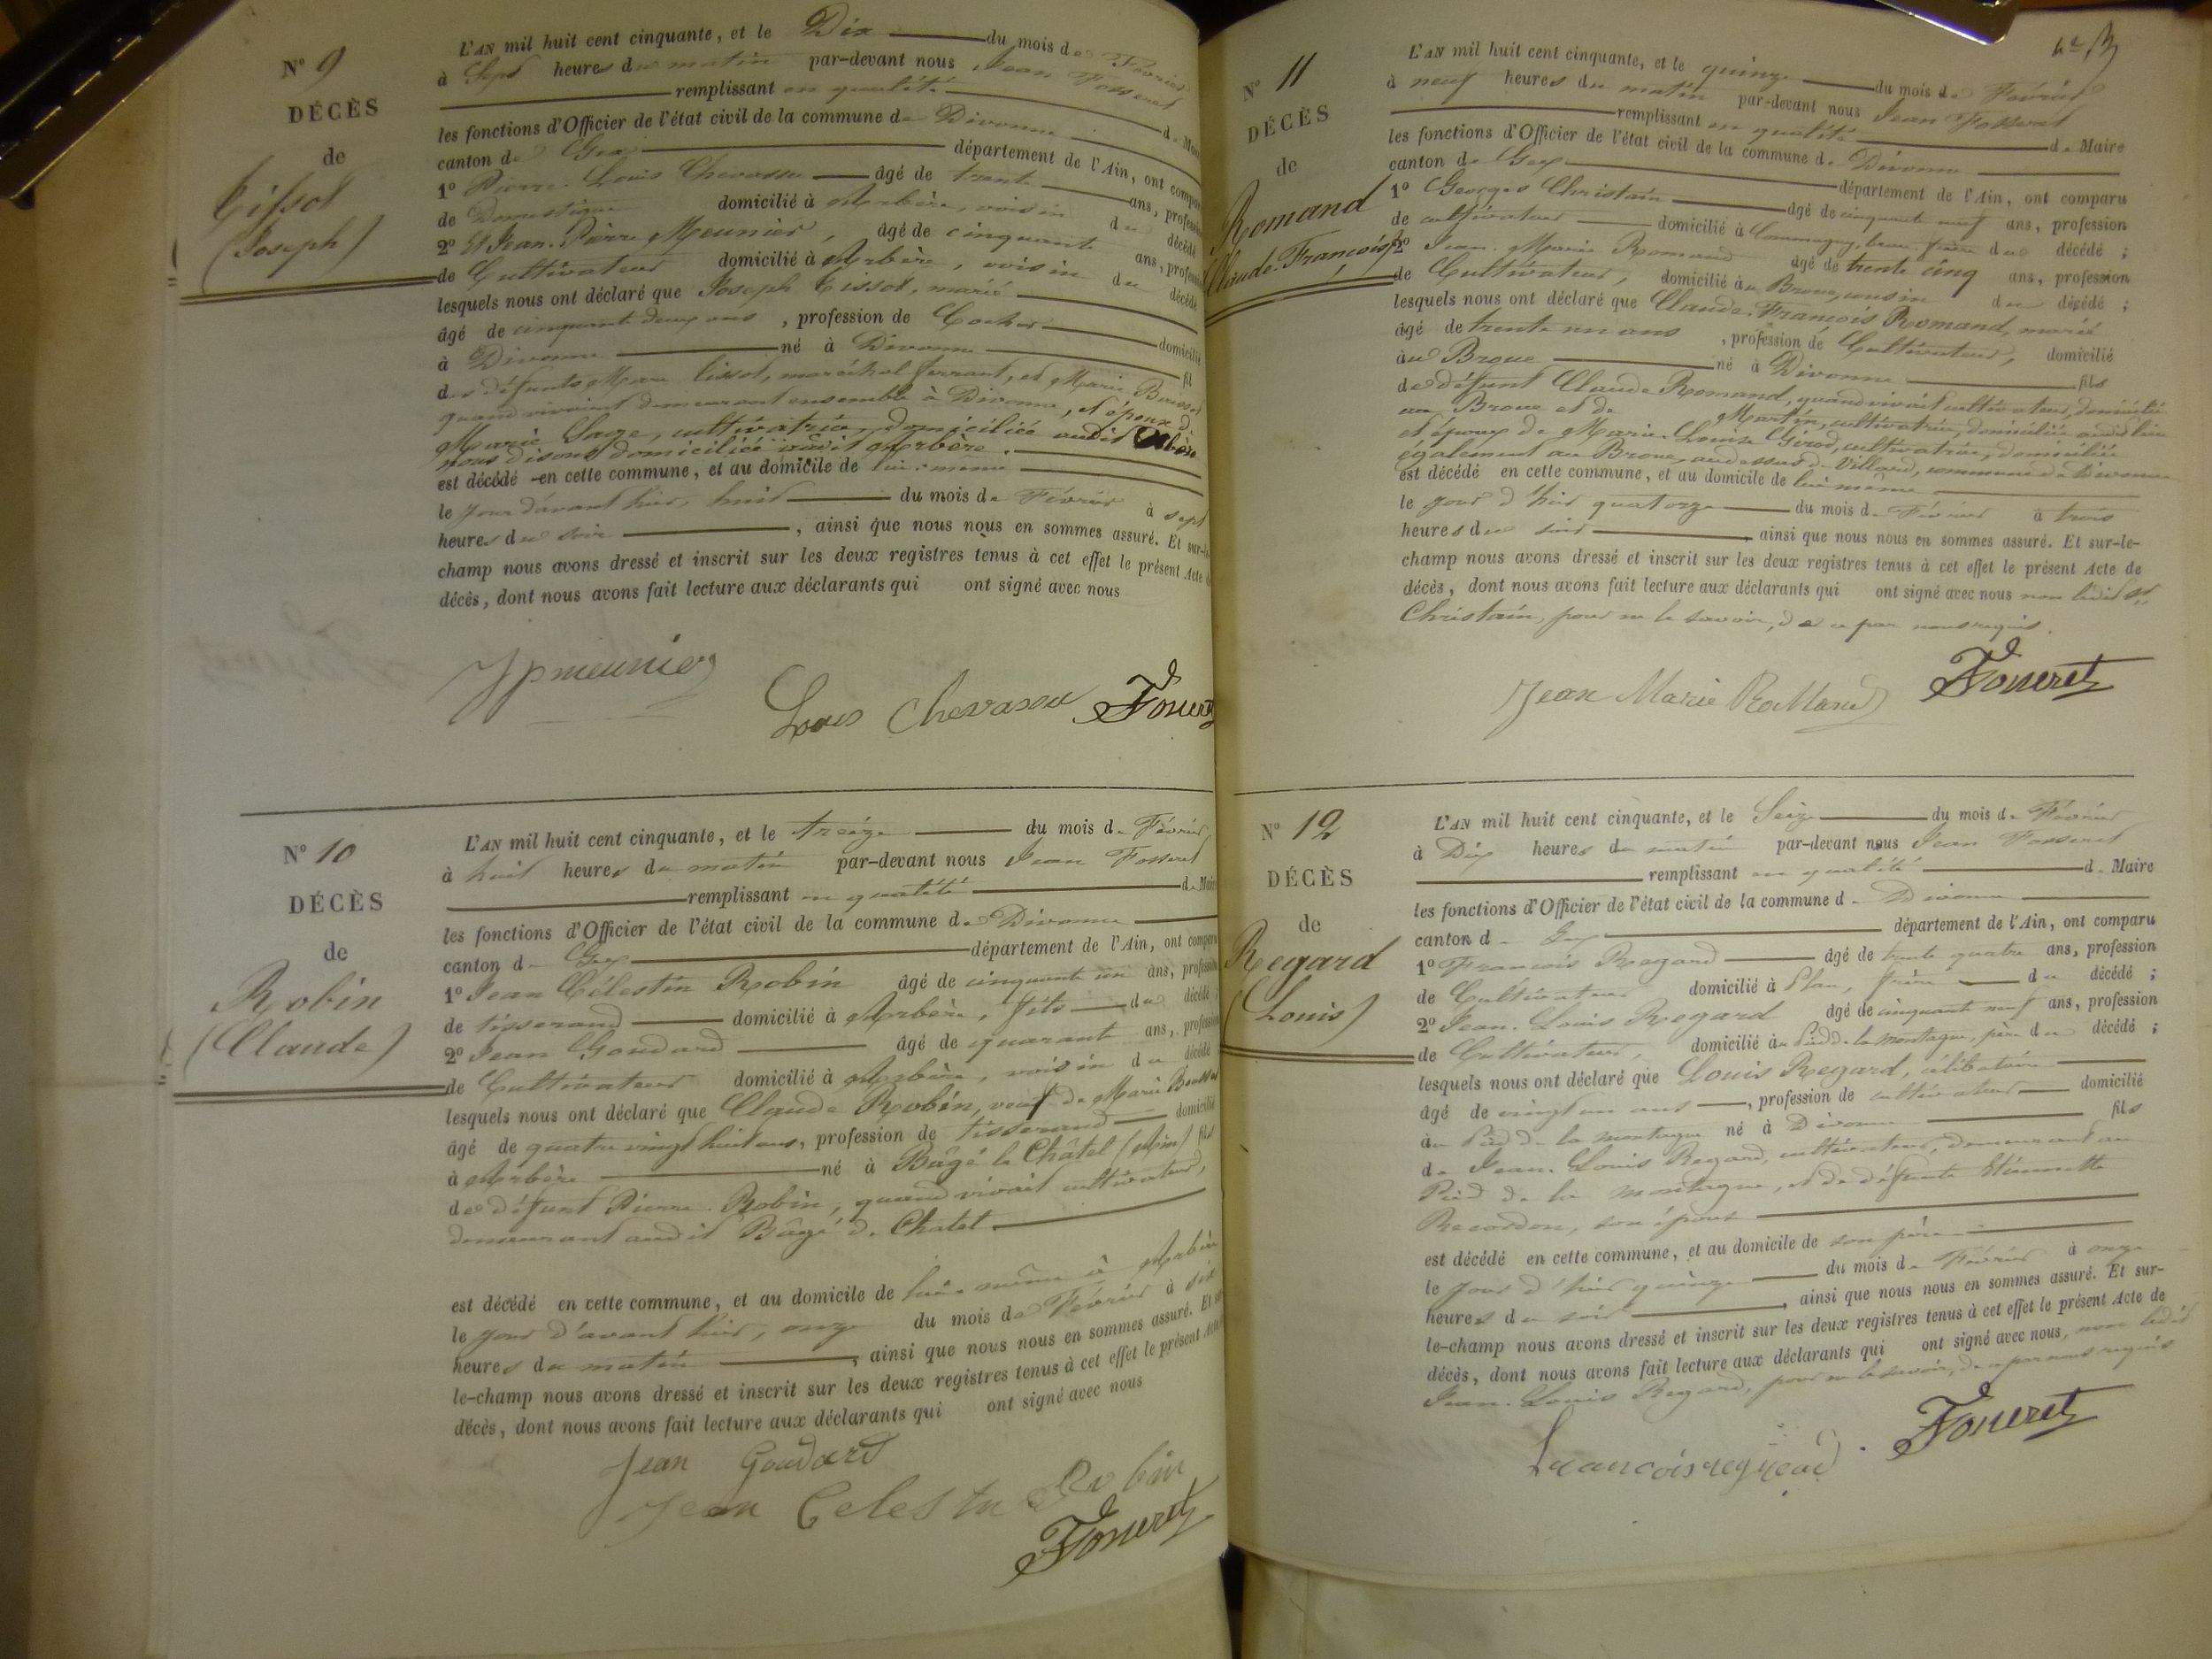 N° 9
DÉCÈS
de
Tissot
(Joseph)
L'AN mil huit cent cinquante, et le Dix du mois de Février
à Sept heures du matin par-devant nous Jean Fosseret
remplissant en qualité de Maire
les fonctions d'Officier de l'état civil de la commune de Divonne
canton de Gex département de l'Ain, ont comparu
1° Pierre Louis Chevassu âgé de trente ans, profession
de Domestique domicilié à Arbère, voisin du décédé
2° Et Jean-Pierre Meunier, âgé de cinquante ans, profession
de Cultivateur domicilié à Arbère, voisin du décédé
lesquels nous ont déclaré que Joseph Tissot, marié
âgé de cinquante deux ans, profession de Cocher domicilié
à Divonne né à Divonne fil
des défunts Marc Tissot, maréchal ferrant, et Marie
quand vivaient demeurant ensemble à Divonne, et époux de
Marie Sage, cultivatrice, domiciliée audit
nous disons domiciliée audit Arbère.
est décédé en cette commune, et au domicile de lui-même
le jour d'avant hier, huit du mois de Février à sept
heures du soir, ainsi que nous nous en sommes assuré. Et sur-le-
champ nous avons dressé et inscrit sur les deux registres tenus à cet effet le présent Acte de
décès, dont nous avons fait lecture aux déclarants qui ont signé avec nous
Jpmeunier
Louis Chevassu Fosseret
N° 10
DÉCÈS
de
Robin
(Claude)
L'AN mil huit cent cinquante, et le treize du mois de Février
à huit heures du matin par-devant nous Jean Fosseret
remplissant en qualité de Maire
les fonctions d'Officier de l'état civil de la commune de Divonne
canton de Gex département de l'Ain, ont comparu
1° Jean Célestin Robin âgé de cinquante un ans, profession
de tisserand domicilié à Arbère, fils du décédé
2° Jean Goudard âgé de quarante ans, profession
de Cultivateur domicilié à Arbère, voisin du décédé
lesquels nous ont déclaré que Claude Robin, veuf de Marie
âgé de quatre vingt huit ans, profession de tisserand domicilié
à Arbère né à Bâgé le Châtel (Ain) fils
de défunt Pierre Robin, quand vivait cultivateur,
demeurant audit Bâgé le Chatel
est décédé en cette commune, et au domicile de lui-même à Arbère
le jour d'avant hier, onze du mois de Février à six
heures du matin, ainsi que nous nous en sommes assuré. Et sur-
le-champ nous avons dressé et inscrit sur les deux registres tenus à cet effet le présent Acte
décès, dont nous avons fait lecture aux déclarants qui ont signé avec nous
Jean Goudard
Jean Celestin Robin
Fosseret
N° 11
DÉCÈS
de
Romand
Claude-François
L'AN mil huit cent cinquante, et le quinze du mois de Février
à neuf heures du matin par-devant nous Jean Fosseret
remplissant en qualité de Maire
les fonctions d'Officier de l'état civil de la commune de Divonne
canton de Gex département de l'Ain, ont comparu
1° Georges Christain âgé de cinquante neuf ans, profession
de cultivateur domicilié à Commugny, beau-frère du décédé ;
2° Jean-Marie Romand âgé de trente cinq ans, profession
de Cultivateur, domicilié au Broue, cousin du décédé ;
lesquels nous ont déclaré que Claude-François Romand, marié
âgé de trente un ans, profession de Cultivateur, domicilié
au Broue né à Divonne fils
de défunt Claude Romand, quand vivait cultivateur, domicilié
au Broue et de Martin, cultivatrice, domiciliée audit lieu
et époux de Marie-Louise Girod, cultivatrice, domiciliée
également au Broue, au dessus de Villard, commune de Divonne
est décédé en cette commune, et au domicile de lui-même
le jour d'hier quatorze du mois de Février à trois
heures du soir, ainsi que nous nous en sommes assuré. Et sur-le-
champ nous avons dressé et inscrit sur les deux registres tenus à cet effet le présent Acte de
décès, dont nous avons fait lecture aux déclarants qui ont signé avec nous non ledit
Christain, pour ne le savoir, de ce par nous requis.
Jean Marie Romand Fosseret
N° 12
DÉCÈS
de
Regard
(Louis)
L'AN mil huit cent cinquante, et le Seize du mois de Février
à Dix heures du matin par-devant nous Jean Fosseret
remplissant en qualité de Maire
les fonctions d'Officier de l'état civil de la commune de Divonne
canton de Gex département de l'Ain, ont comparu
1° François Regard âgé de trente quatre ans, profession
de Cultivateur domicilié à Plan, frère du décédé ;
2° Jean-Louis Regard âgé de cinquante neuf ans, profession
de Cultivateur, domicilié au Pied de la montagne, père du décédé ;
lesquels nous ont déclaré que Louis Regard, célibataire
âgé de vingt un ans, profession de cultivateur domicilié
au Pied de la montagne né à Divonne fils
de Jean-Louis Regard, cultivateur, demeurant au
Pied de la montagne, et de défunte Etiennette
Recordon, son épouse
est décédé en cette commune, et au domicile de son père
le jour d'hier quinze du mois de Février à onze
heures du soir, ainsi que nous nous en sommes assuré. Et sur-
le-champ nous avons dressé et inscrit sur les deux registres tenus à cet effet le présent Acte de
décès, dont nous avons fait lecture aux déclarants qui ont signé avec nous, non ledit
Jean-Louis Regard, pour ne le savoir, de ce par nous requis
Francois regard Fosseret